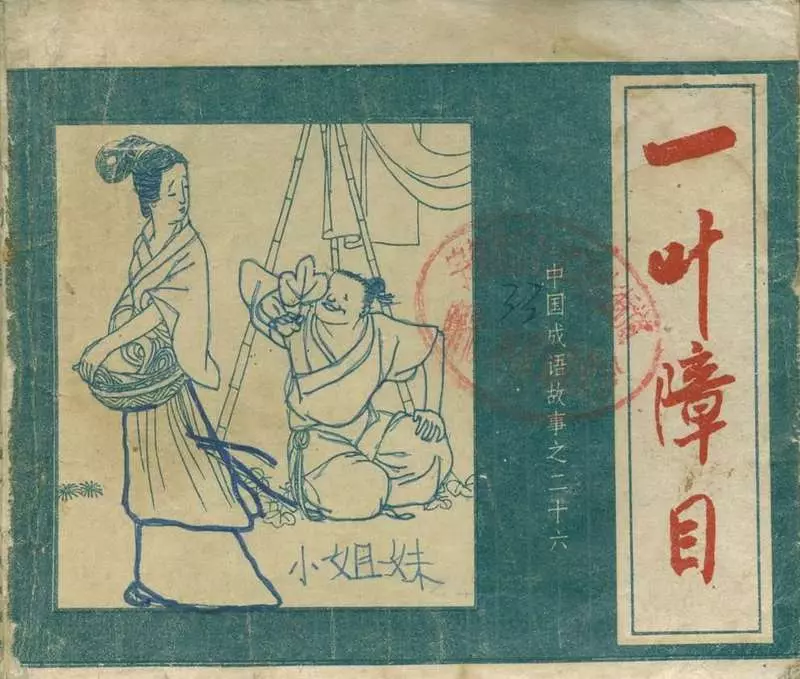 一叶障目
中国成语故事之二十六
33
小姐妹